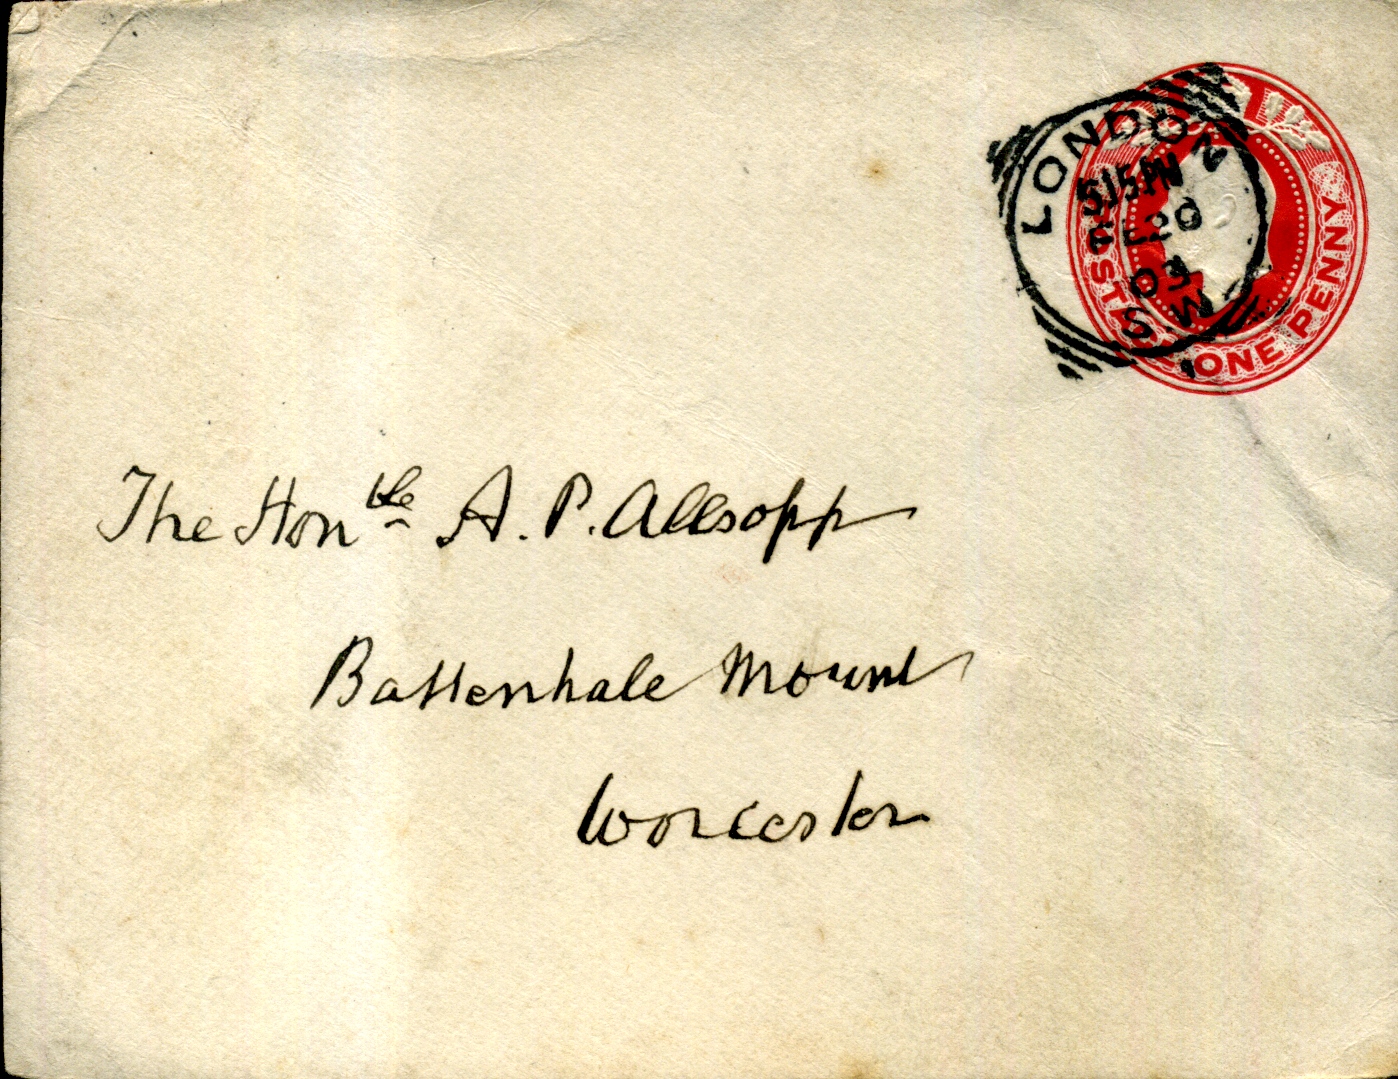 LONDON
5.15 PM
FE 20
03
S.W
ONE PENNY
The Honble A. P. Allsopp
Battenhale Mount
Worcester